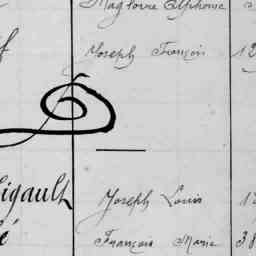 Magloire Alphonse
Joseph François 12
Joseph Louis 12
François Marie 38